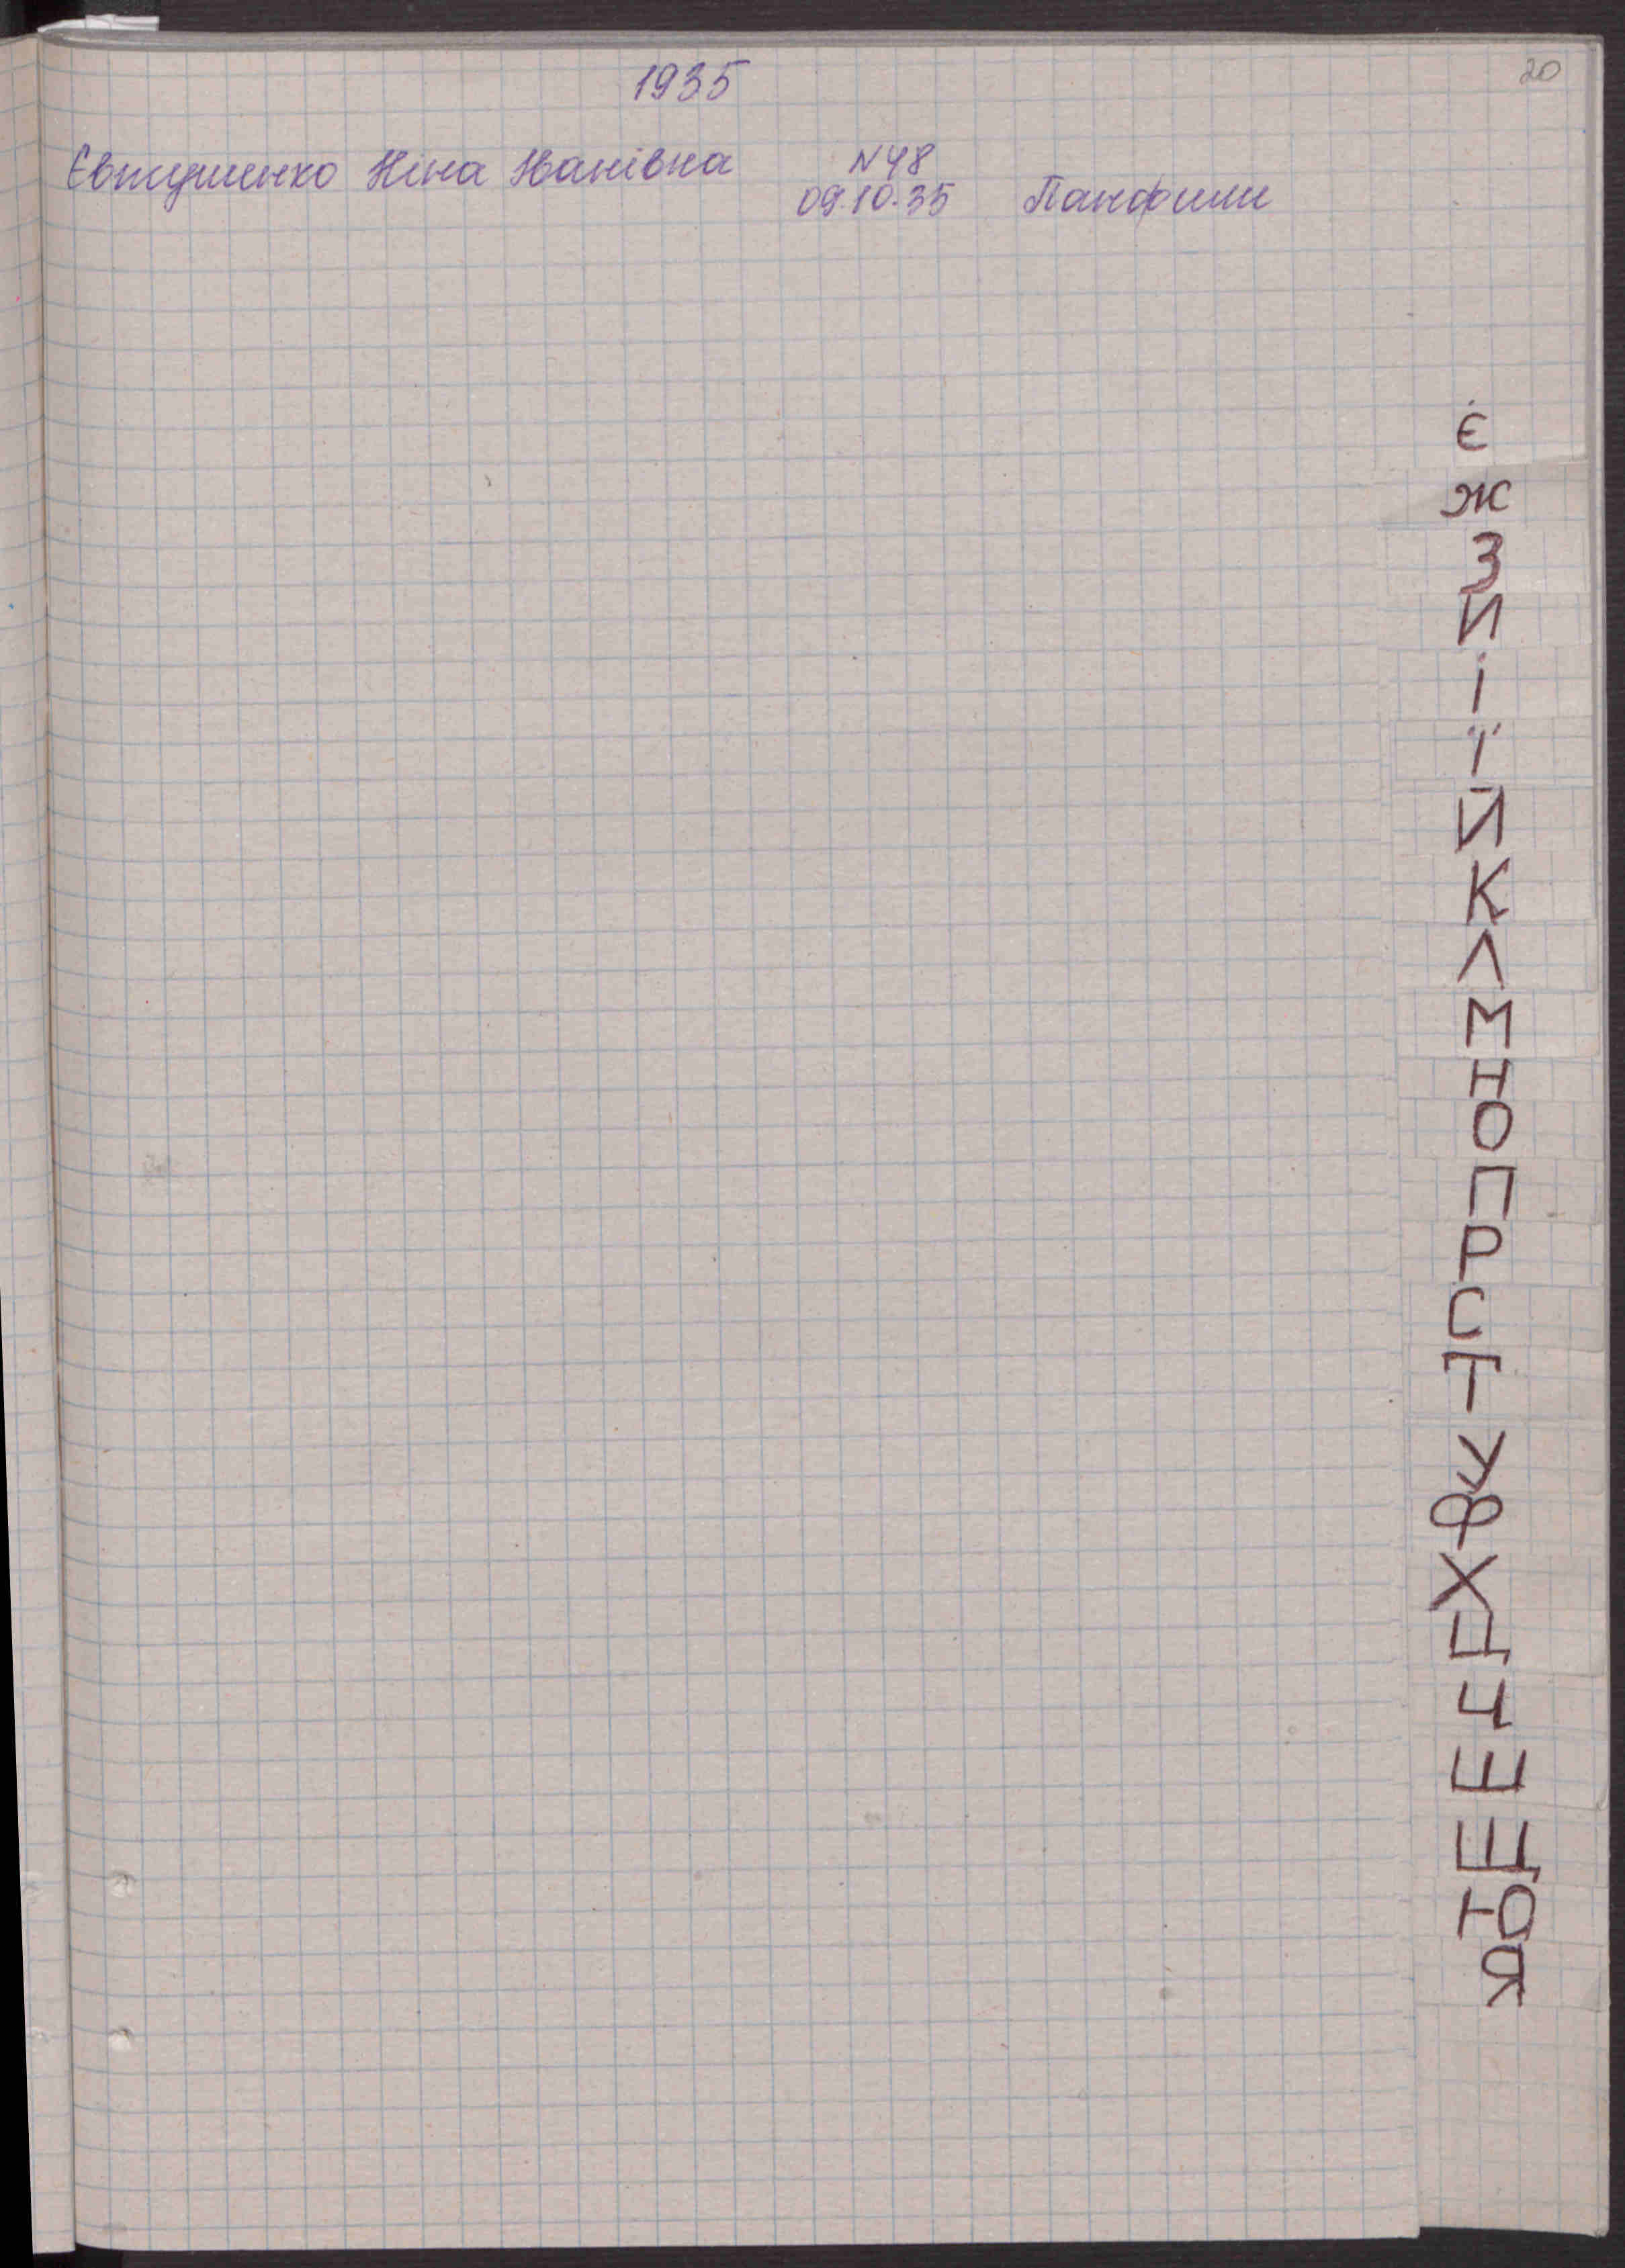 20
1935
Євтушенко Ніна Іванівна N48
09.10.35 Панфили
Є
Ж
З
И
І
Ї
Й
К
Л
М
Н
О
П
Р
С
Т
У
Ф
Х
Ц
Ч
Ш
Щ
Ю
Я